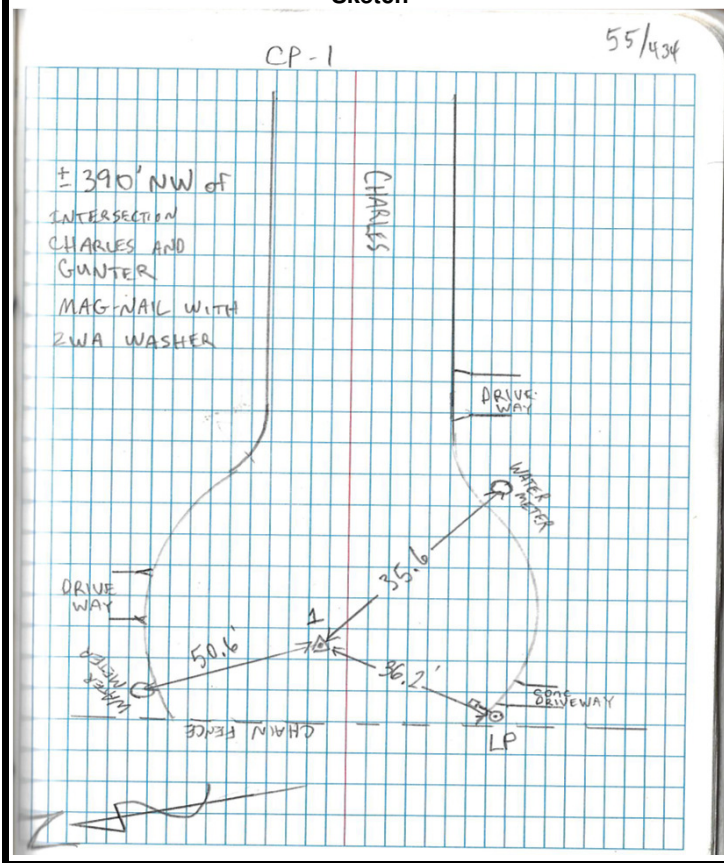 Sketch
55/434
CP-1
± 390' NW of
INTERSECTION
CHARLES AND
GUNTER
MAG-NAIL WITH
2WA WASHER
CHARLES
DRIVE-
WAY
WATER
METER
35.6
DRIVE
WAY
1
50.6'
36.2'
WATER
METER
CONC
DRIVEWAY
CHAIN FENCE
LP
N